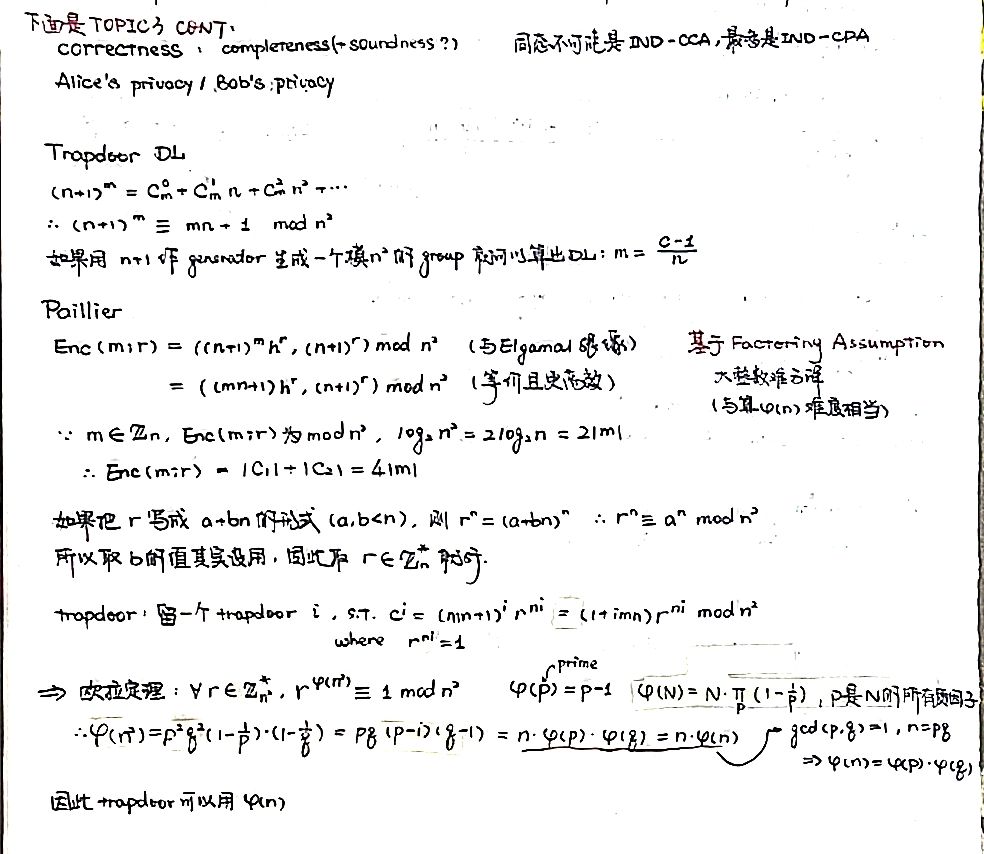 下面是TOPIC3 CONT:
correctness: completeness(+soundness?) 同态不可能是IND-CCA,最多是IND-CPA
Alice's privacy / Bob's privacy
Trapdoor DL
(n+1)^m = C_m^0 + C_m^1 n + C_m^2 n² + ⋯
∴ (n+1)^m ≡ mn + 1 mod n²
如果用 n+1 作 generator 生成一个模n²的group 就可以算出DL: m = (c-1)/n
Paillier
Enc(m;r) = ((n+1)^m h^r, (n+1)^r) mod n² (与Elgamal很像) 基于 Factoring Assumption
= ((mn+1)h^r, (n+1)^r) mod n² (等价且更高效) 大整数难分解
(与算φ(n)难度相当)
∵ m∈Z_n, Enc(m;r)为mod n², log₂n² = 2log₂n = 2|m|
∴ Enc(m;r) = |C₁| + |C₂| = 4|m|
如果把 r 写成 a+bn 的形式 (a,b<n), 则 r^n = (a+bn)^n ∴ r^n ≡ a^n mod n²
所以取b的值其实没用,因此取 r∈Z_n^* 就可.
trapdoor: 留一个 trapdoor i, s.t. c^i = (mn+1)^i r^{ni} = (1+imn)r^{ni} mod n²
where r^{ni}=1
prime
⇒ 欧拉定理: ∀r∈Z_{n²}^*, r^{φ(n²)} ≡ 1 mod n² φ(p)=p-1 φ(N)=N·∏_p(1-1/p), p是N的所有质因子
∴φ(n²)=p²q²(1-1/p)·(1-1/q) = pq(p-1)(q-1) = n·φ(p)·φ(q) = n·φ(n) gcd(p,q)=1, n=pq
⇒ φ(n)=φ(p)·φ(q)
因此 trapdoor 可以用 φ(n)